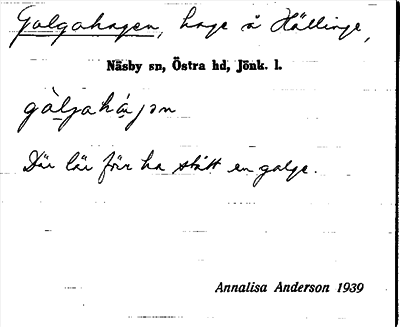 Galgahagen, hage å Hällinge,
Näsby sn, Östra hd, Jönk. l.
gàljahá̱jən
Där lär förr ha stått en galge.
Annalisa Anderson 1939